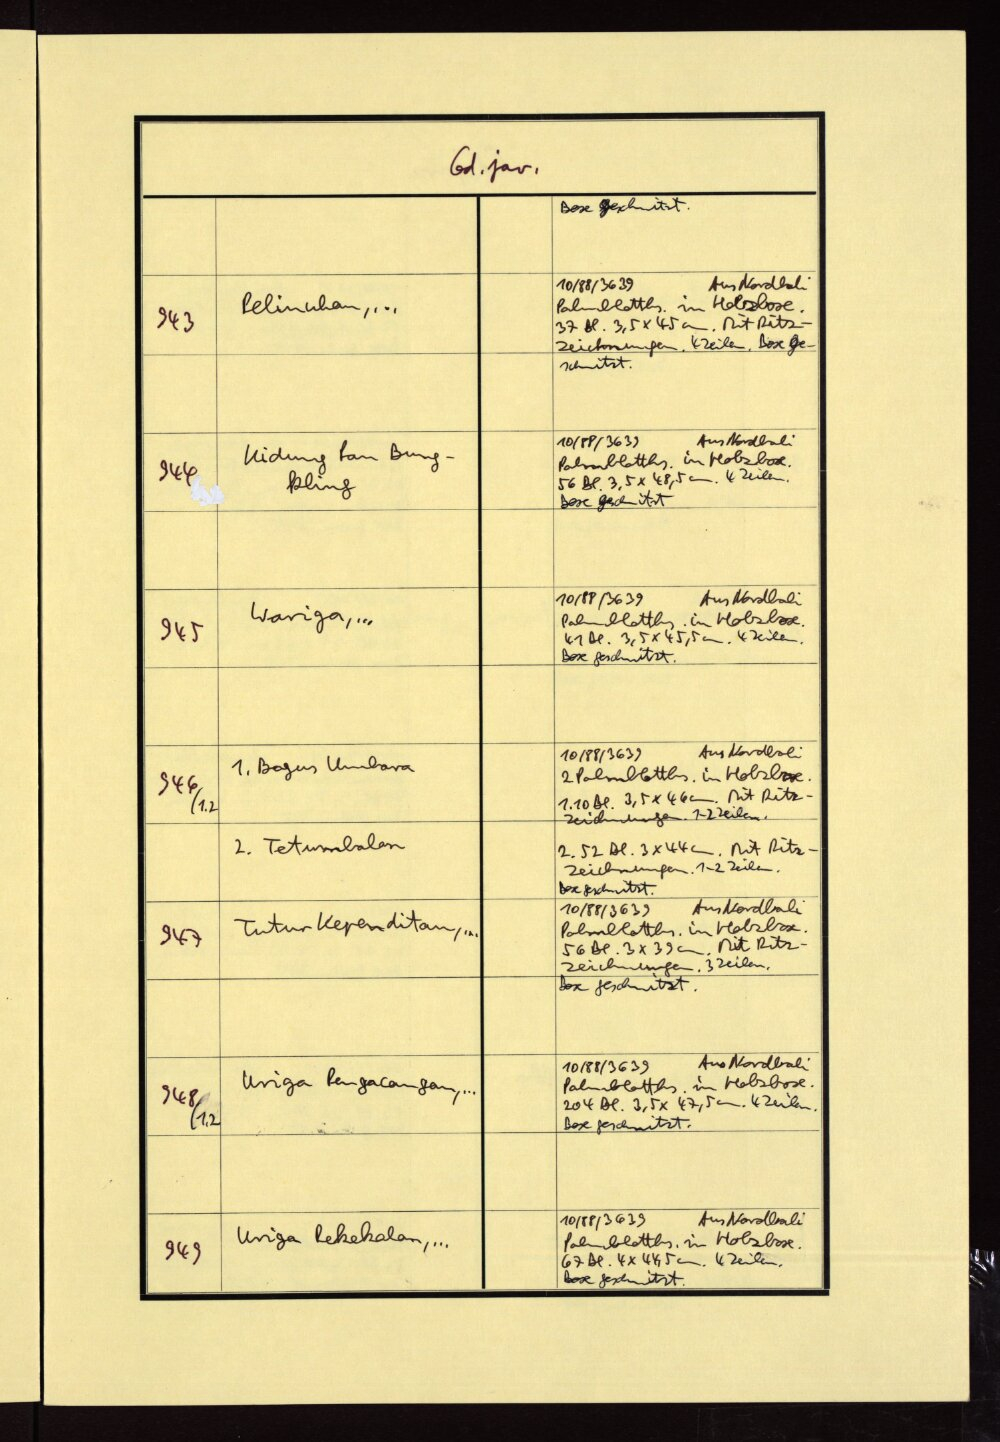 Cd. jav.
Box geschnitzt.
943
Pelinuhan,...
10/88/3639 Aus Nordbali
Palmblatths. in Holzbox.
37 Bl. 3,5 x 45 cm. Mit Ritz-
zeichnungen. 4 Zeilen. Box ge-
schnitzt.
944
Kidung Pan Bung-
kling
10/88/3639 Aus Nordbali
Palmblatths. in Holzbox.
56 Bl. 3,5 x 48,5 cm. 4 Zeilen.
Box geschnitzt
945
Wariga,...
10/88/3639 Aus Nordbali
Palmblatths. in Holzbox.
41 Bl. 3,5 x 45,5 cm. 4 Zeilen.
Box geschnitzt.
946
(1.2
1. Bagus Umbara
10/88/3639 Aus Nordbali
2 Palmblatths. in Holzbox.
1. 10 Bl. 3,5 x 46 cm. Mit Ritz-
zeichnungen. 1-2 Zeilen.
2. Tetumbalan
2. 52 Bl. 3 x 44 cm. Mit Ritz-
zeichnungen. 1-2 Zeilen.
Box geschnitzt.
947
Tutur Kepanditan,...
10/88/3639 Aus Nordbali
Palmblatths. in Holzbox.
56 Bl. 3 x 39 cm. Mit Ritz-
zeichnungen. 3 Zeilen.
Box geschnitzt.
948
(1.2
Uriga Pengacangan,...
10/88/3639 Aus Nordbali
Palmblatths. in Holzbox.
204 Bl. 3,5 x 47,5 cm. 4 Zeilen.
Box geschnitzt.
949
Uriga Pekekalan,...
10/88/3639 Aus Nordbali
Palmblatths. in Holzbox.
67 Bl. 4 x 44,5 cm. 4 Zeilen.
Box geschnitzt.